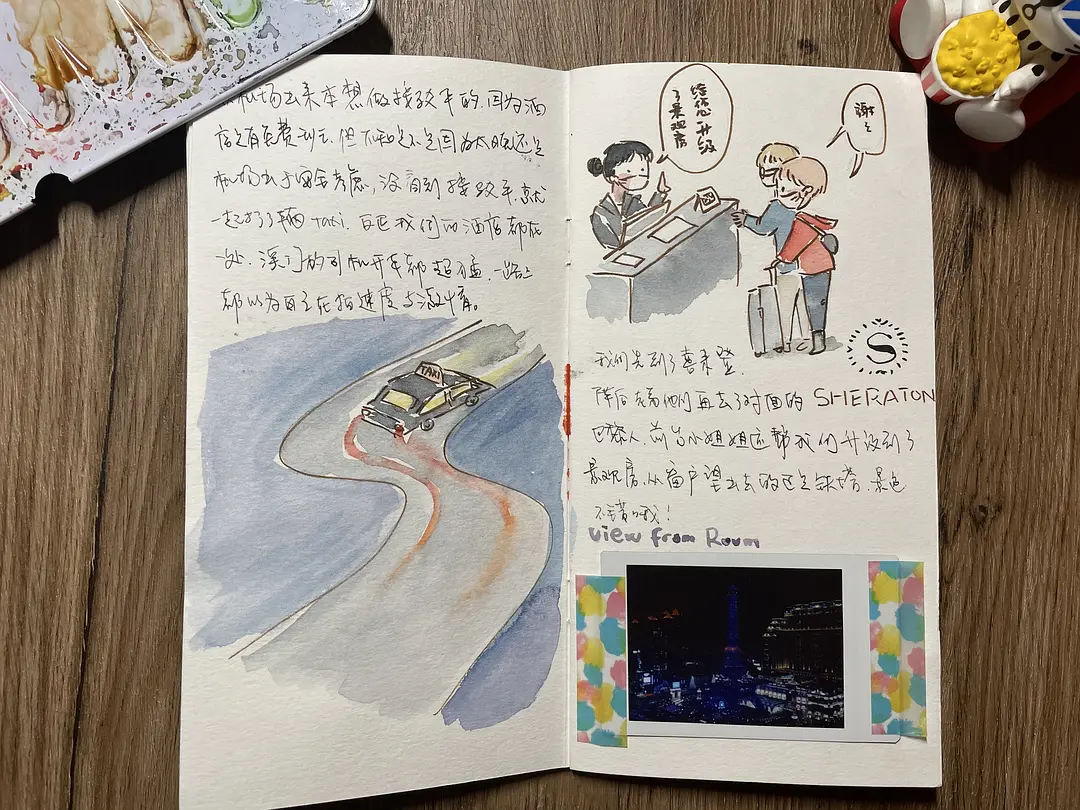 机场出来本想做接驳车的，因为酒
店是有免费班车，但不知是不是因为太晚还是
机场出于安全考虑，没看到接驳车，就
一起打了辆 Taxi，反正我们的酒店都在
一处，澳门的司机开车都超猛，一路上
都以为自己在拍速度与激情。
TAXI
给您升级
了景观房
谢谢
S
我们先到了喜来登，
陪他们再去了对面的 SHERATON
巴黎人，前台小姐姐还帮我们升级到了
景观房，从窗户望出去的还是铁塔，景色
不错哦！
View from Room